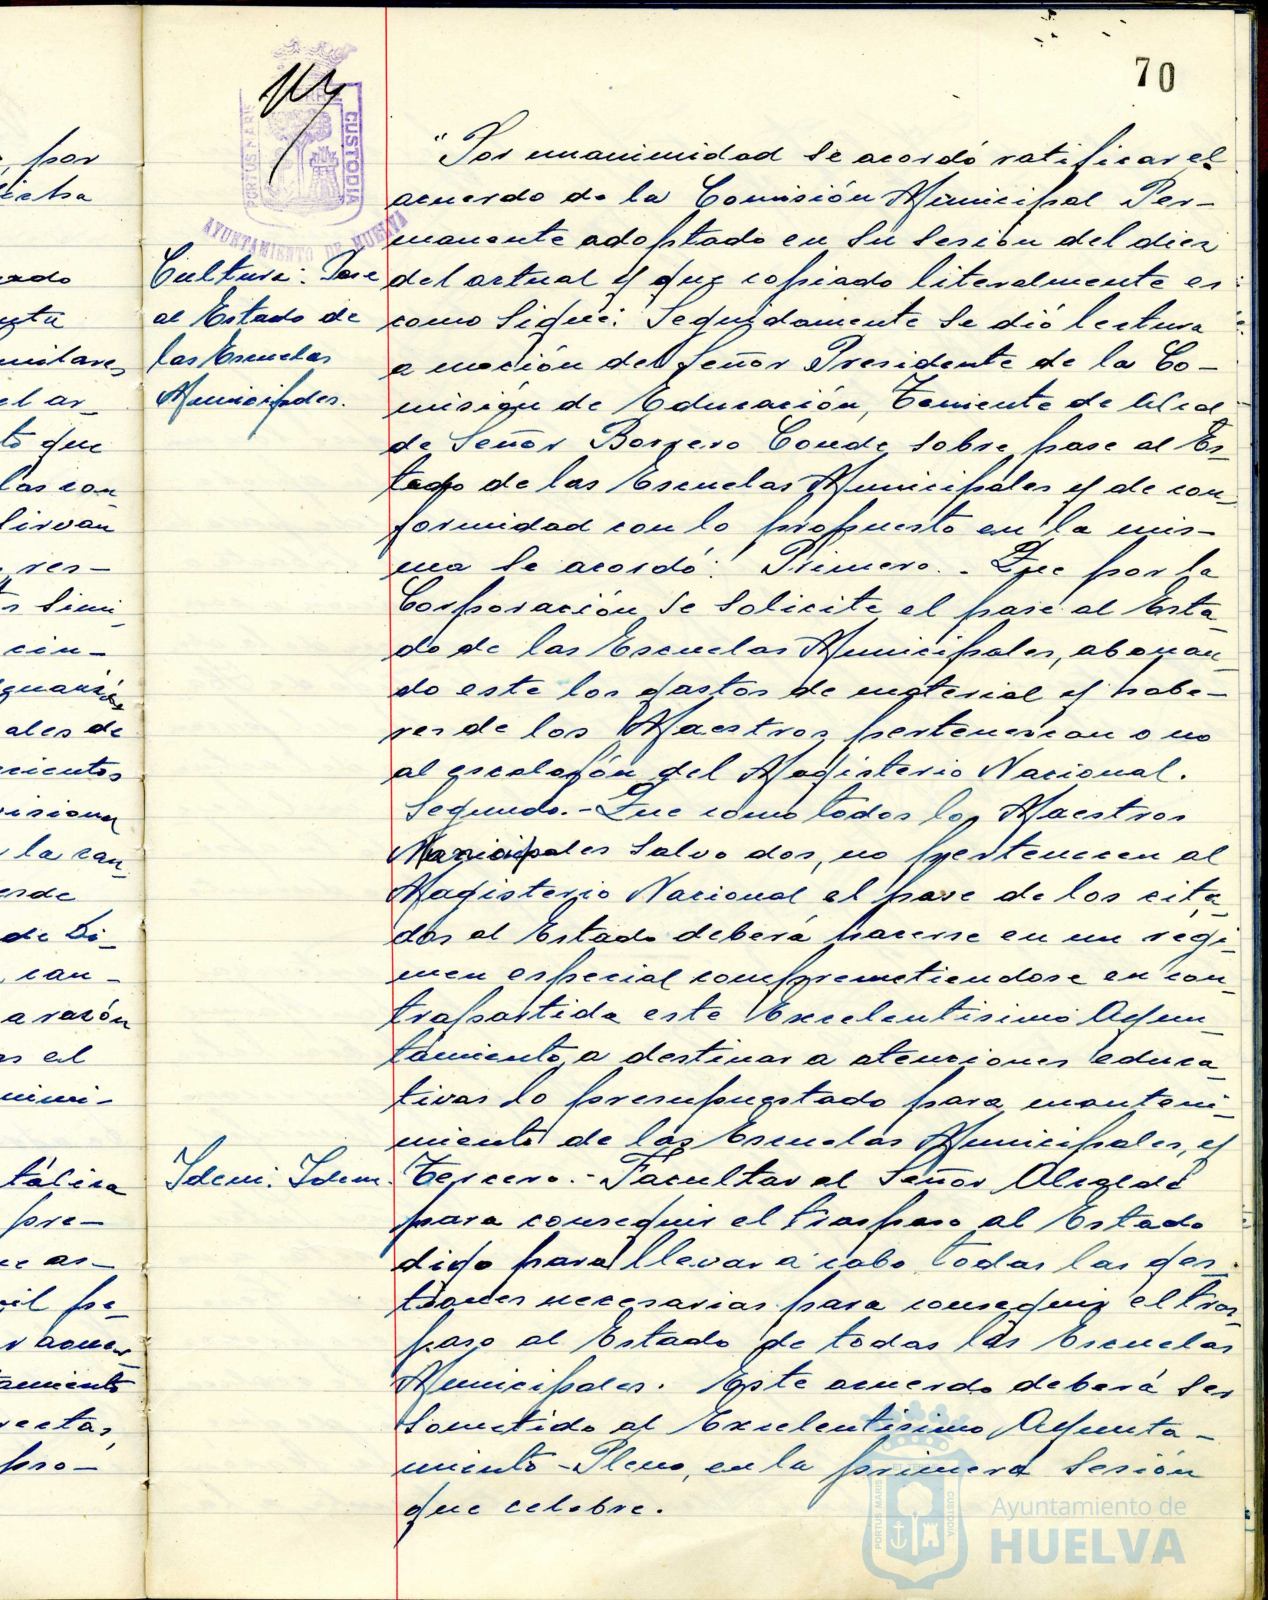 70
PORTUS MARIS
CUSTODIA
AYUNTAMIENTO DE HUELVA
, por
ado
el ar-
to que
las con
sirvan
, res-
s simi-
cin-
ales de
cientos
visional
la can-
de Di-
, can-
a razón
as el
nimi-
pre-
ue as-
amiento
rectas,
pro-
Cultura: Pase
al Estado de
las Escuelas
Municipales.
Idem: Idem.
"Por unanimidad se acordó ratificar el
acuerdo de la Comisión Municipal Per-
manente adoptado en su sesion del diez
del actual y que copiado literalmente es
como sigue: Seguidamente se dió lectura
a moción del Señor Presidente de la Co-
misión de Educación, Teniente de Alcal
de Señor Borrero Conde sobre pase al Es-
tado de las Escuelas Municipales y de con-
formidad con lo propuesto en la mis-
ma se acordó: Primero.- Que por la
Corporación se solicite el pase al Esta-
do de las Escuelas Municipales, abonan-
do este los gastos de material y habe-
res de los Maestros pertenezcan o no
al escalafón del Magisterio Nacional.
Segundo.- Que como todos los Maestros
Municipales salvo dos, no pertenecen al
Magisterio Nacional el pase de los cita-
dos al Estado deberá hacerse en un regi-
men especial comprometiendose en con-
trapartida este Excelentisimo Ayun-
tamiento a destinar a atenciones educa-
tivas lo presupuestado para manteni-
miento de las Escuelas Municipales, y
Tercero.- Facultar al Señor Alcalde
para conseguir el traspaso al Estado
digo para llevar a cabo todas las ges-
tiones necesarias para conseguir el tras-
paso al Estado de todas las Escuelas
Municipales. Este acuerdo deberá ser
sometido al Excelentisimo Ayunta-
miento-Pleno, en la primera sesión
que celebre.
PORTUS MARIS
CUSTODIA
Ayuntamiento de
HUELVA